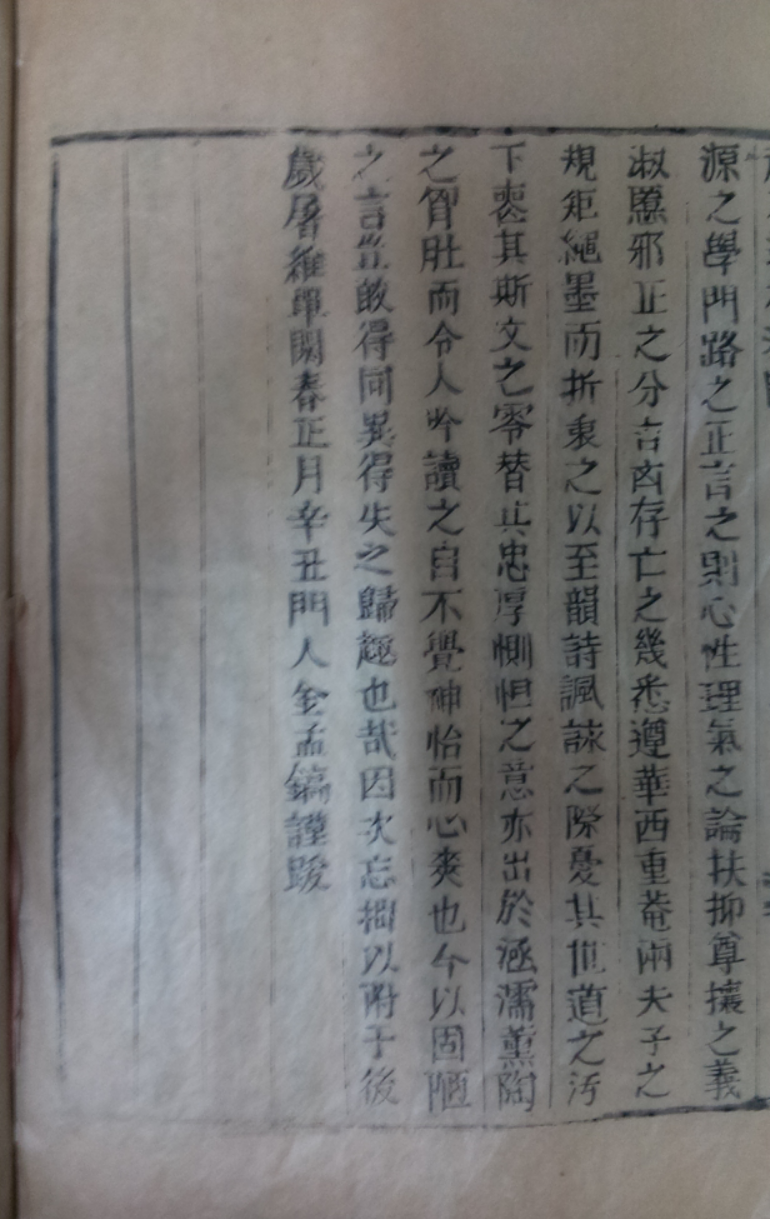 源之學門路之正言之則心性理氣之論扶抑尊攘之義
淑慝邪正之分吉凶存亡之幾悉遵華西重菴兩夫子之
規矩繩墨而折衷之以至韻詩諷詠之際憂其世道之汚
下喪其斯文之零替其忠厚惻怛之意亦出於涵濡薰陶
之胷肚而令人吟讀之自不覺神怡而心爽也今以固陋
之言豈敢得同異得失之歸趣也哉因次忘拙以附于後
歲屠維單閼春正月辛丑門人金孟鎬謹跋